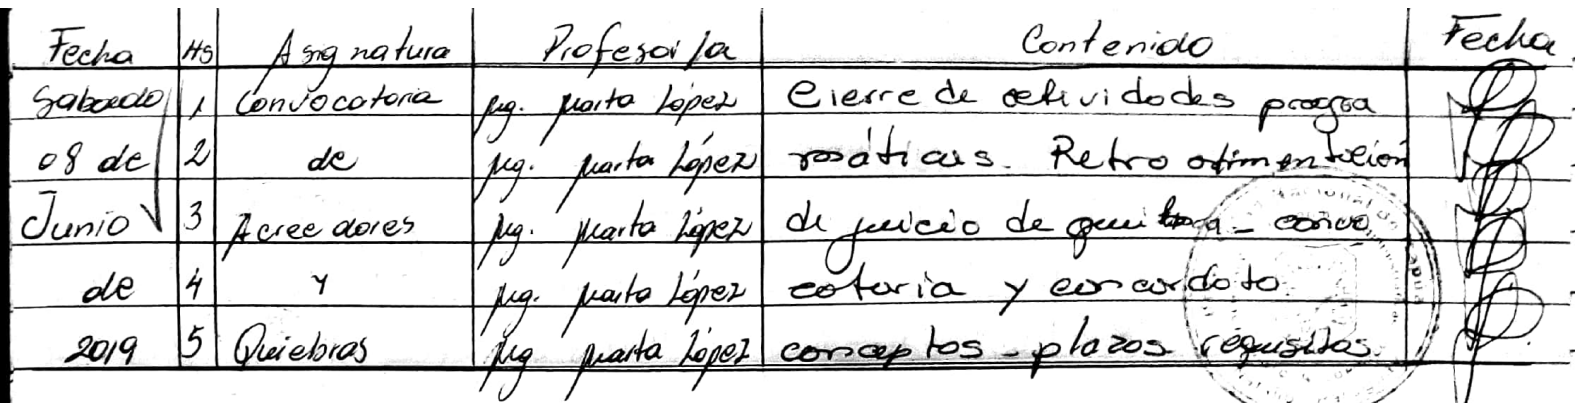 Fecha Hs Asignatura Profesor/a Contenido Fecha
Sabado 1 Convocatoria Mg. Marta López Cierre de actividades progra
08 de 2 de Mg. Marta López máticas. Retroalimentación
Junio 3 Acreedores Mg. Marta López de juicio de quiebra - convo
de 4 y Mg. Marta López catoria y concordato.
2019 5 Quiebras Mg Marta López conceptos - plazos requisitos.